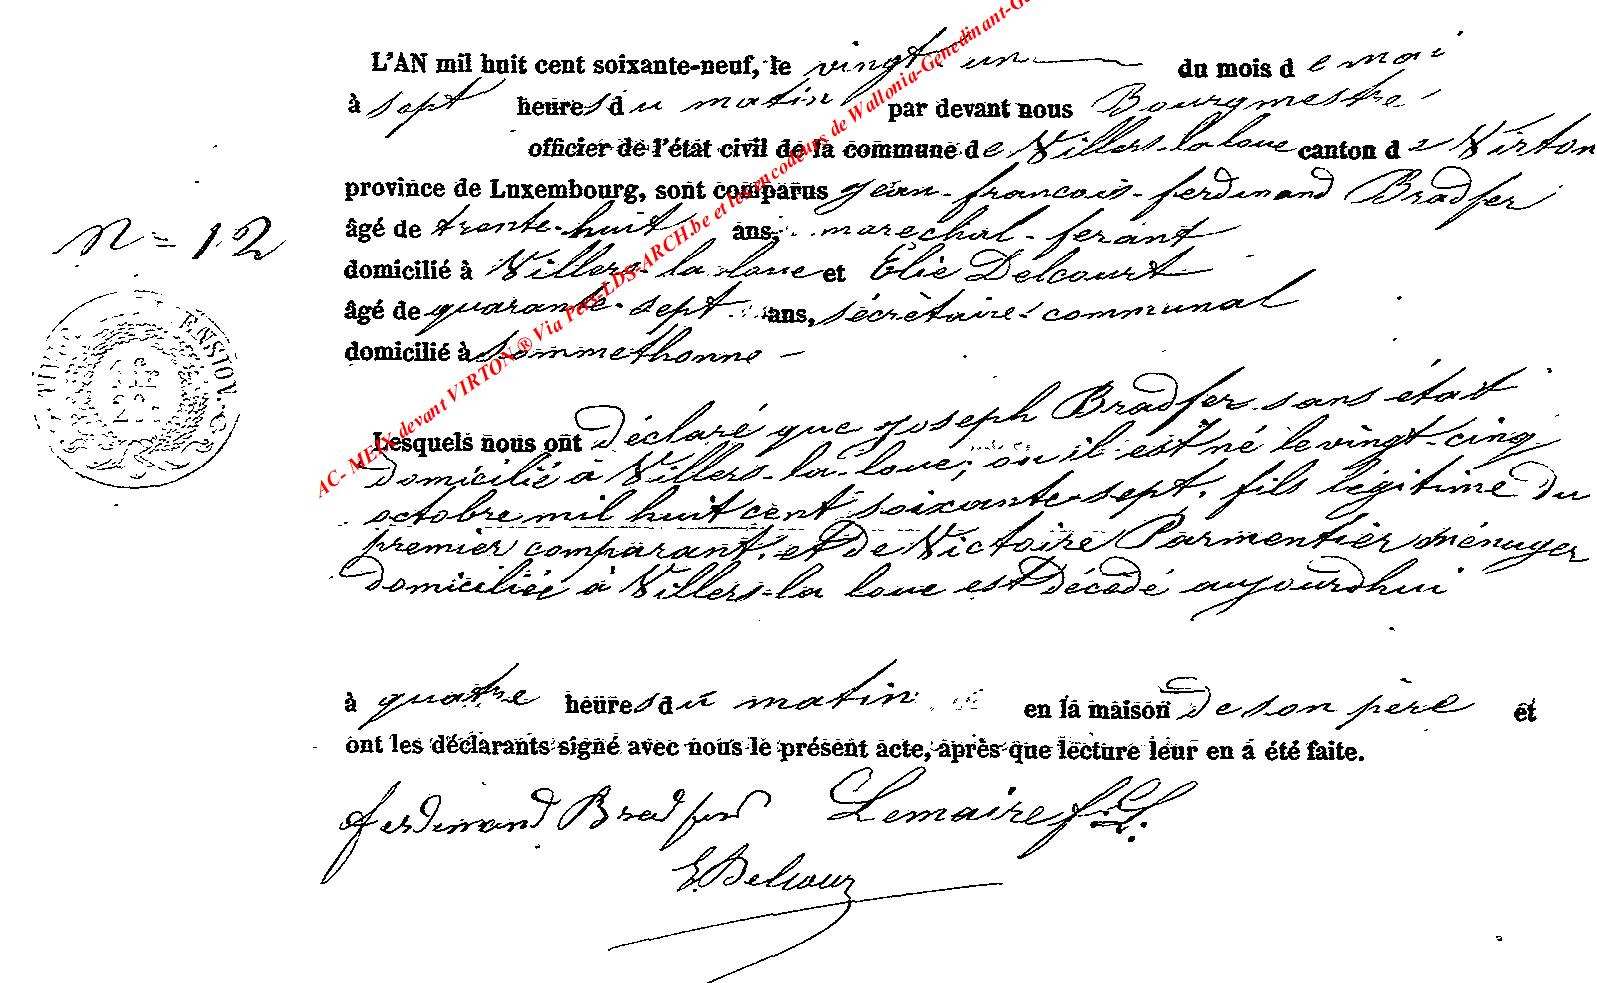 L'AN mil huit cent soixante-neuf, le vingt-un du mois de mai
à sept heures du matin par devant nous Bourgmestre
officier de l'état civil de la commune de Villers-la-loue canton de Virton
province de Luxembourg, sont comparus jean-francois-ferdinand Bradfer
âgé de trente-huit ans, marechal-ferant
domicilié à Villers-la-loue et Élie Delcourt
N = 12
âgé de quarante-sept ans, sécrètaire-communal
domicilié à Sommethonne
Lesquels nous ont déclaré que joseph Bradfer sans état
domicilié à Villers-la-loue, où il est né le vingt-cinq
octobre mil huit cent soixante-sept, fils légitime du
premier comparant, et de Victoire Parmentier ménager
domiciliée à Villers-la loue est décédé aujourdhui
à quatre heures du matin en la maison de son père et
ont les déclarants signé avec nous le présent acte, après que lecture leur en a été faite.
ferdinand Bradfer Lemaire
E. Delcour
AC- MEIX devant VIRTON® Via Pers-LDS-ARCH.be et les encodeurs de Wallonia-Genedinant-G